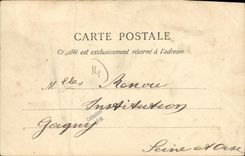 CARTE POSTALE
Ce côté est exclusivement réservé à l'adresse
M elles Renou
Institution
Gagny
Seine et Oise